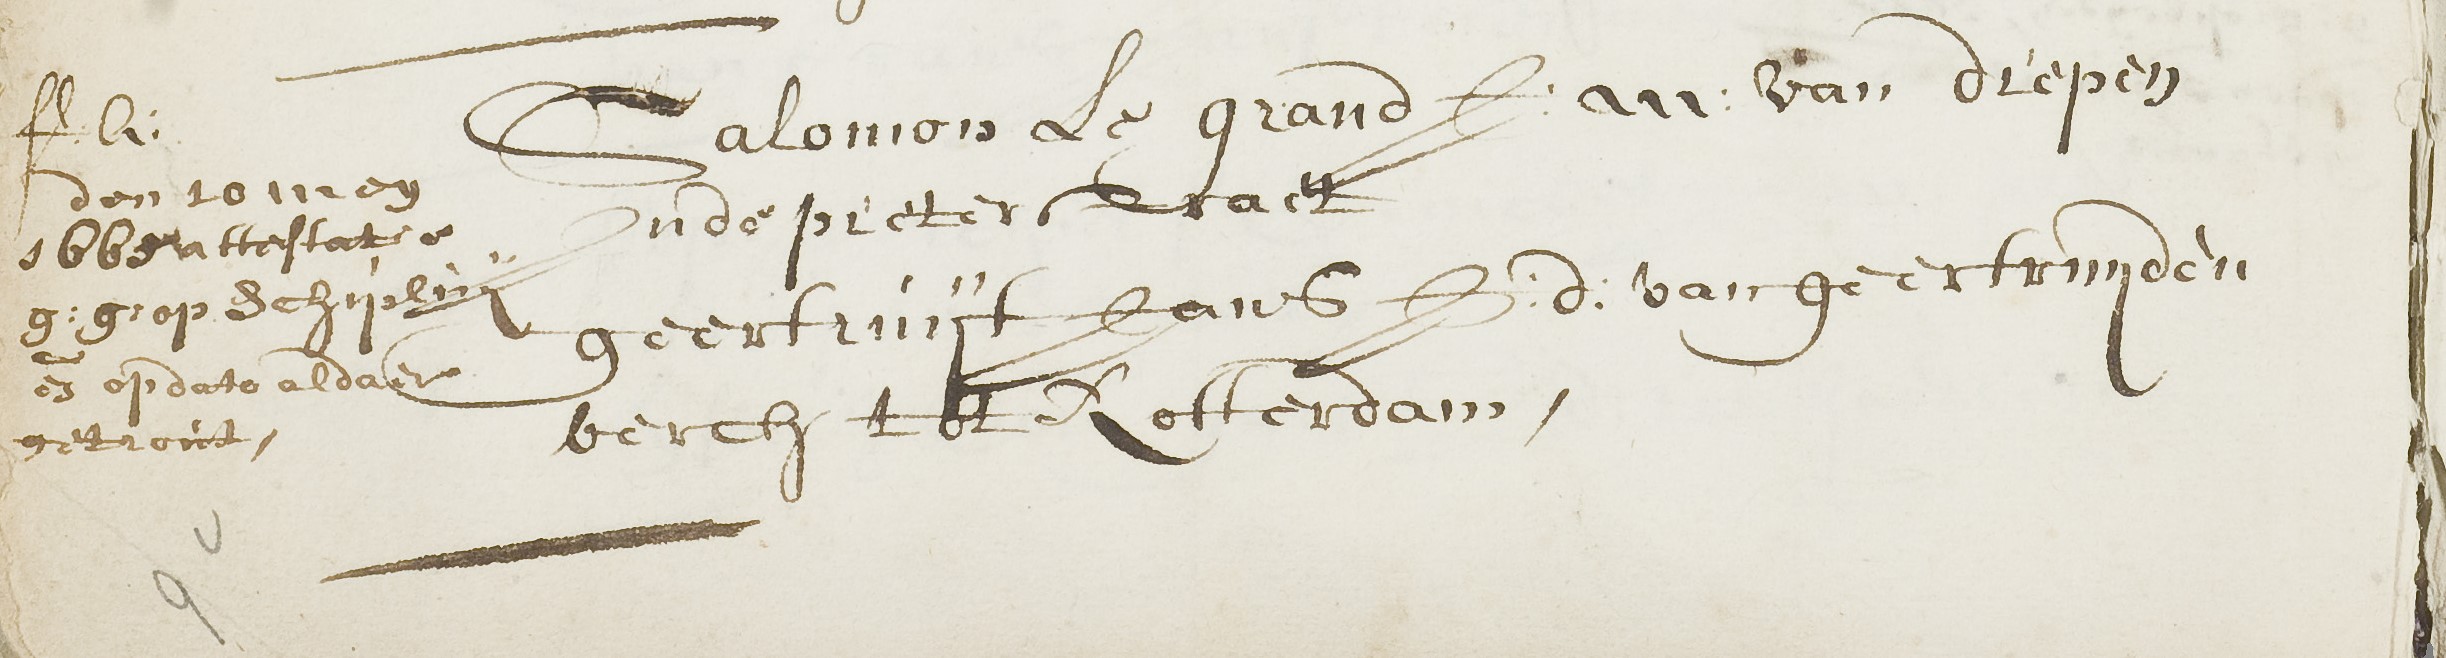 den 10 mey
1665 attestatie
g: g: op Schiplùÿ
eñ op dato aldaer
getrout /
Salomon Le grand J: M: van Diepen
inde pieterstraet
geertruijt Jans J: d: van geertruijden
berch tot Rotterdam /